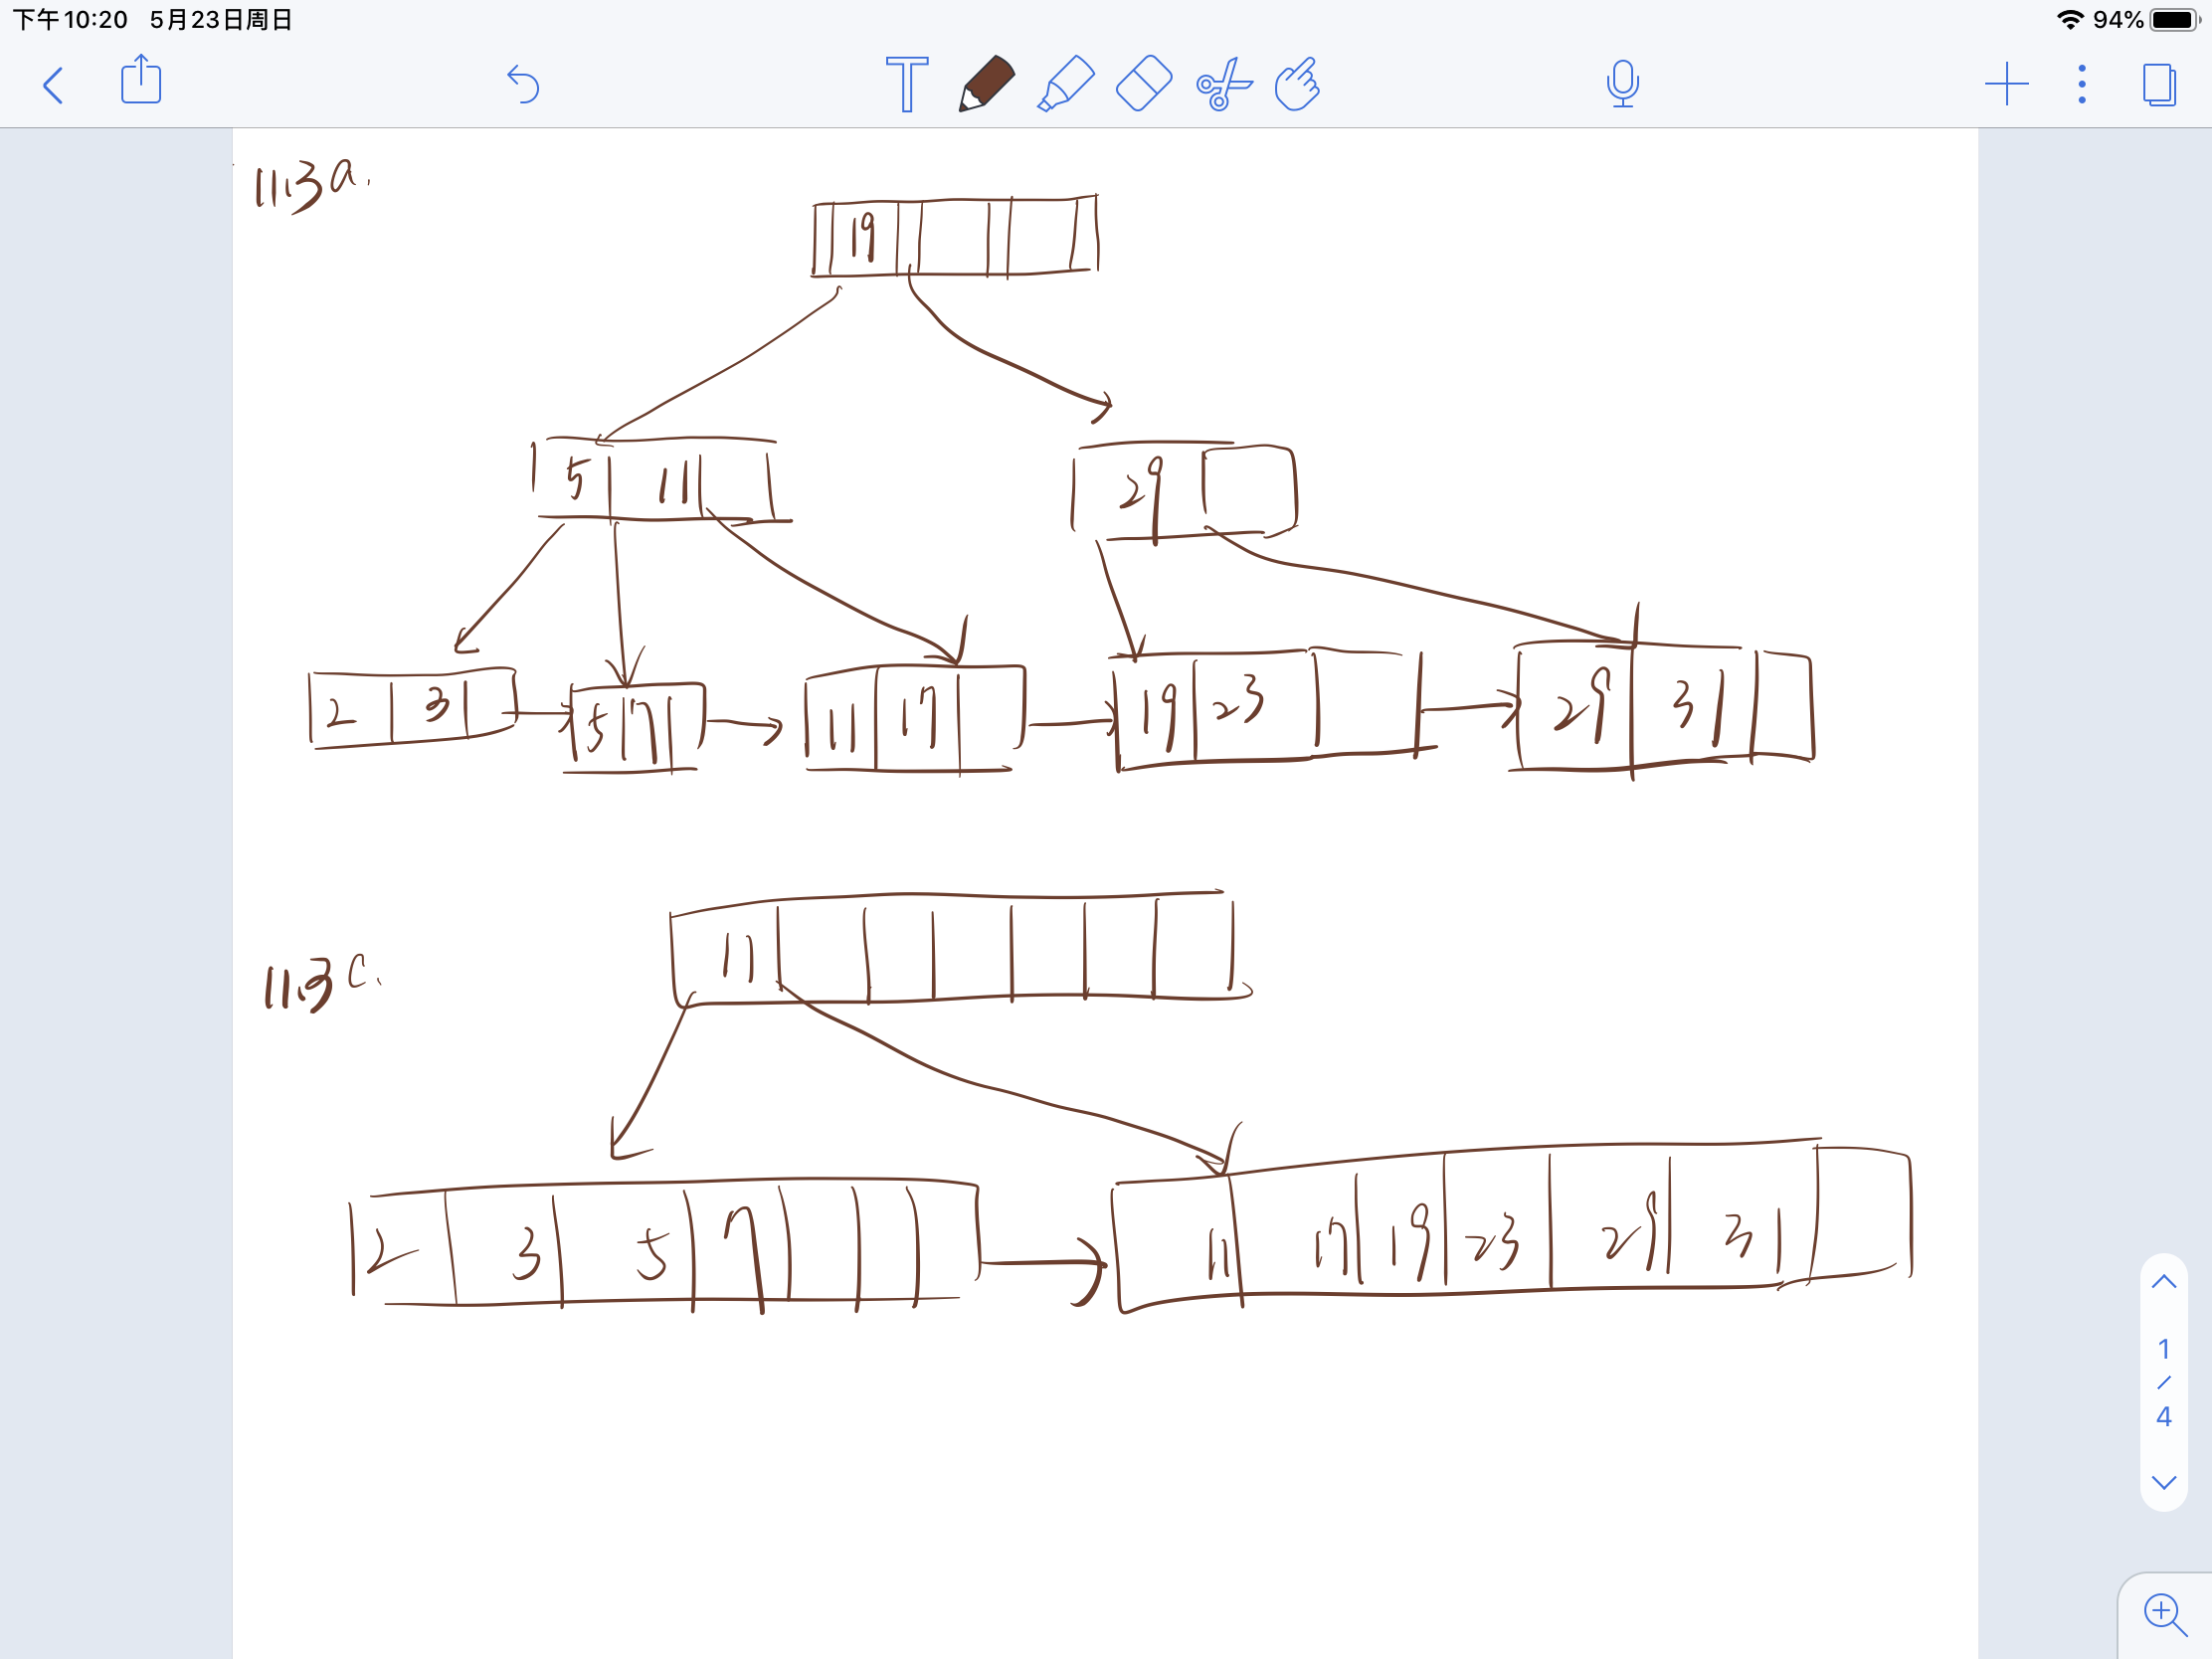 下午10:20 5月23日周日
94%
T
11.3 a.
19
5 11
29
2 3 5 7 11 17 19 23 29 31
11.3 c.
11
2 3 5 7 11 17 19 23 29 31
1
/
4